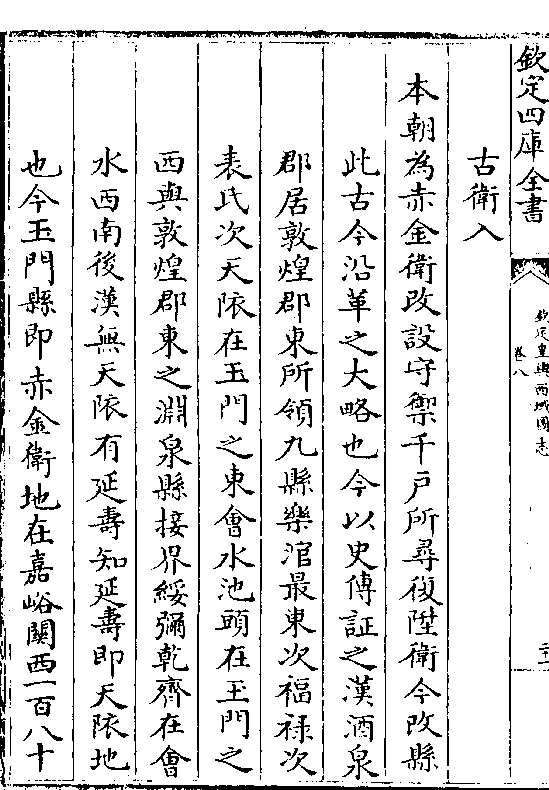 欽定四庫全書
欽定皇輿西域圖志
卷八
二十一
古衛入
本朝為赤金衛改設守禦千戶所尋復陞衛今改縣
此古今沿革之大略也今以史傳証之漢酒泉
郡居敦煌郡東所領九縣樂涫最東次福祿次
表氏次天陜在玉門之東會水池頭在玉門之
西與敦煌郡東之淵泉縣接界綏彌乾齊在會
水西南後漢無天陜有延壽知延壽即天陜地
也今玉門縣即赤金衛地在嘉峪關西一百八十